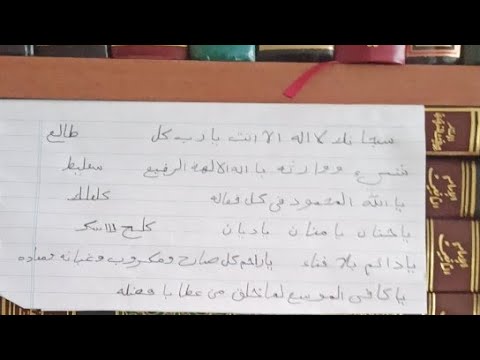 سبحانك لا اله الا انت يا رب كل طالع
شيء ووارثه يا اله الالهة الرفيع
يا الله المحمود في كل فعاله
يا حنان يا منان يا ديان
يا دائم بلا فناء يا راحم كل صارخ ومكروب وغياثه ومعاذه
يا كافي الموسع لما خلق من عطايا فضله